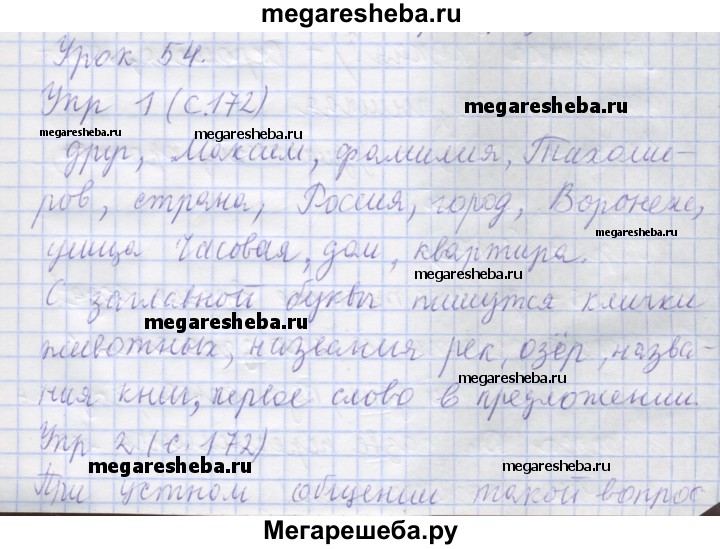 megaresheba.ru
Урок 54.
Упр 1 (с.172)
megaresheba.ru
megaresheba.ru
megaresheba.ru
друг, Максим, фамилия, Тихоми-
ров, страна, Россия, город, Воронеж,
megaresheba.ru
улица Часовая, дом, квартира.
megaresheba.ru
С заглавной буквы пишутся клички
megaresheba.ru
megaresheba.ru
животных, названия рек, озёр, назва-
megaresheba.ru
ния книг, первое слово в предложении.
Упр 2 (с. 172)
megaresheba.ru
megaresheba.ru
При устном общении такой вопрос
Мегарешеба.ру